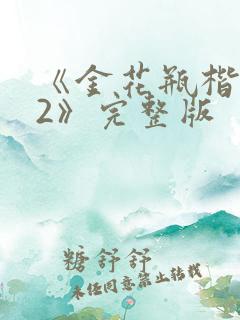 《金花瓶楷
2》完整版
糖舒舒
未经同意禁止转载